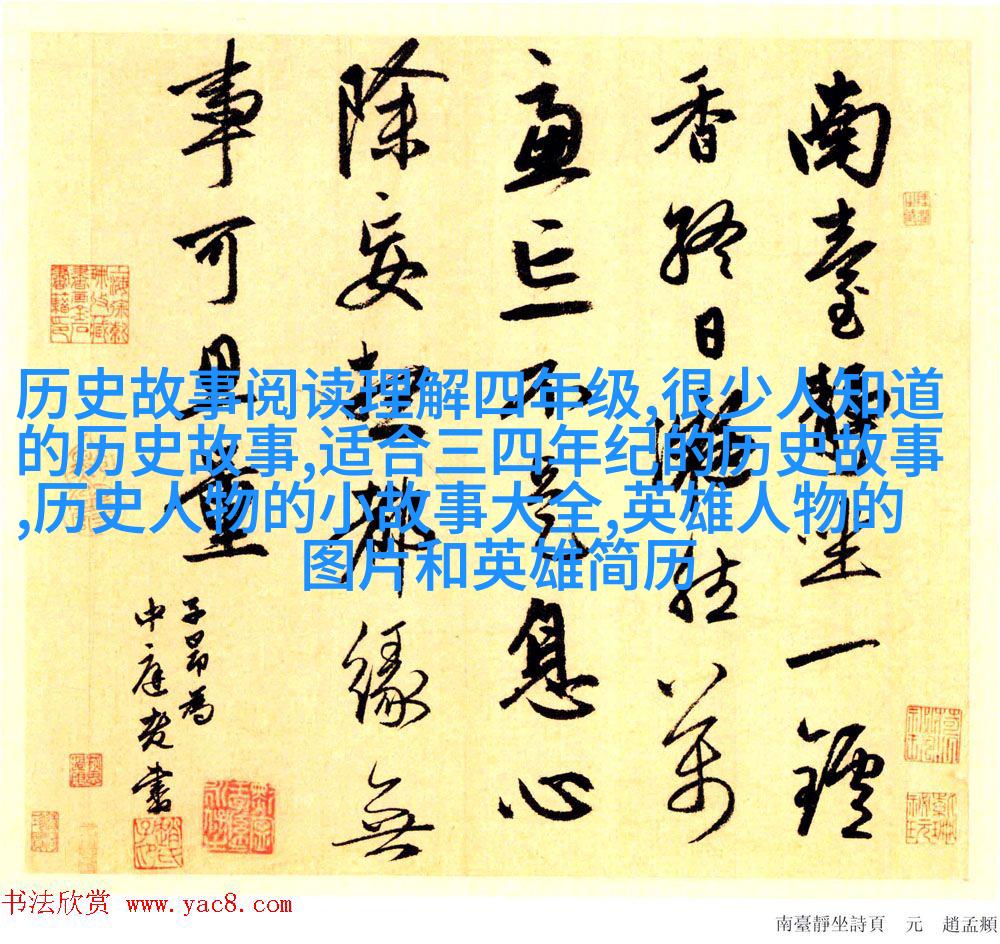 南臺靜坐一鑪
香終日凝然萬
慮亡不是息心
除妄想都緣無
事可思量
子昂為
中庭老書
历史故事阅读理解四年级,很少人知道
的历史故事,适合三四年纪的历史故事
,历史人物的小故事大全,英雄人物的
图片和英雄简历
书法欣赏 www.yac8.com
南臺靜坐詩頁 元 趙孟頫